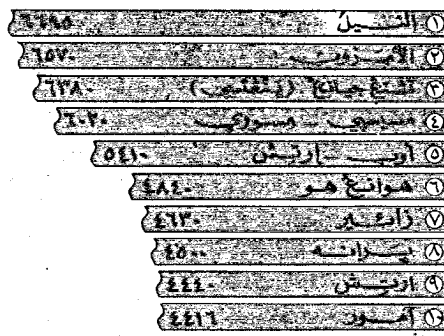 ١ النيل ٦٦٩٥
٢ الأمازون ٦٥٧٠
٣ تشانغ جيانغ (يانغتسي) ٦٣٨٠
٤ مسيسيبي - ميسوري ٦٠٢٠
٥ أوب - إرتش ٥٤١٠
٦ هوانغ هو ٤٨٤٠
٧ زائير ٤٦٣٠
٨ بارانه ٤٥٠٠
٩ ارتش ٤٤٤٠
١٠ آمور ٤٤١٦